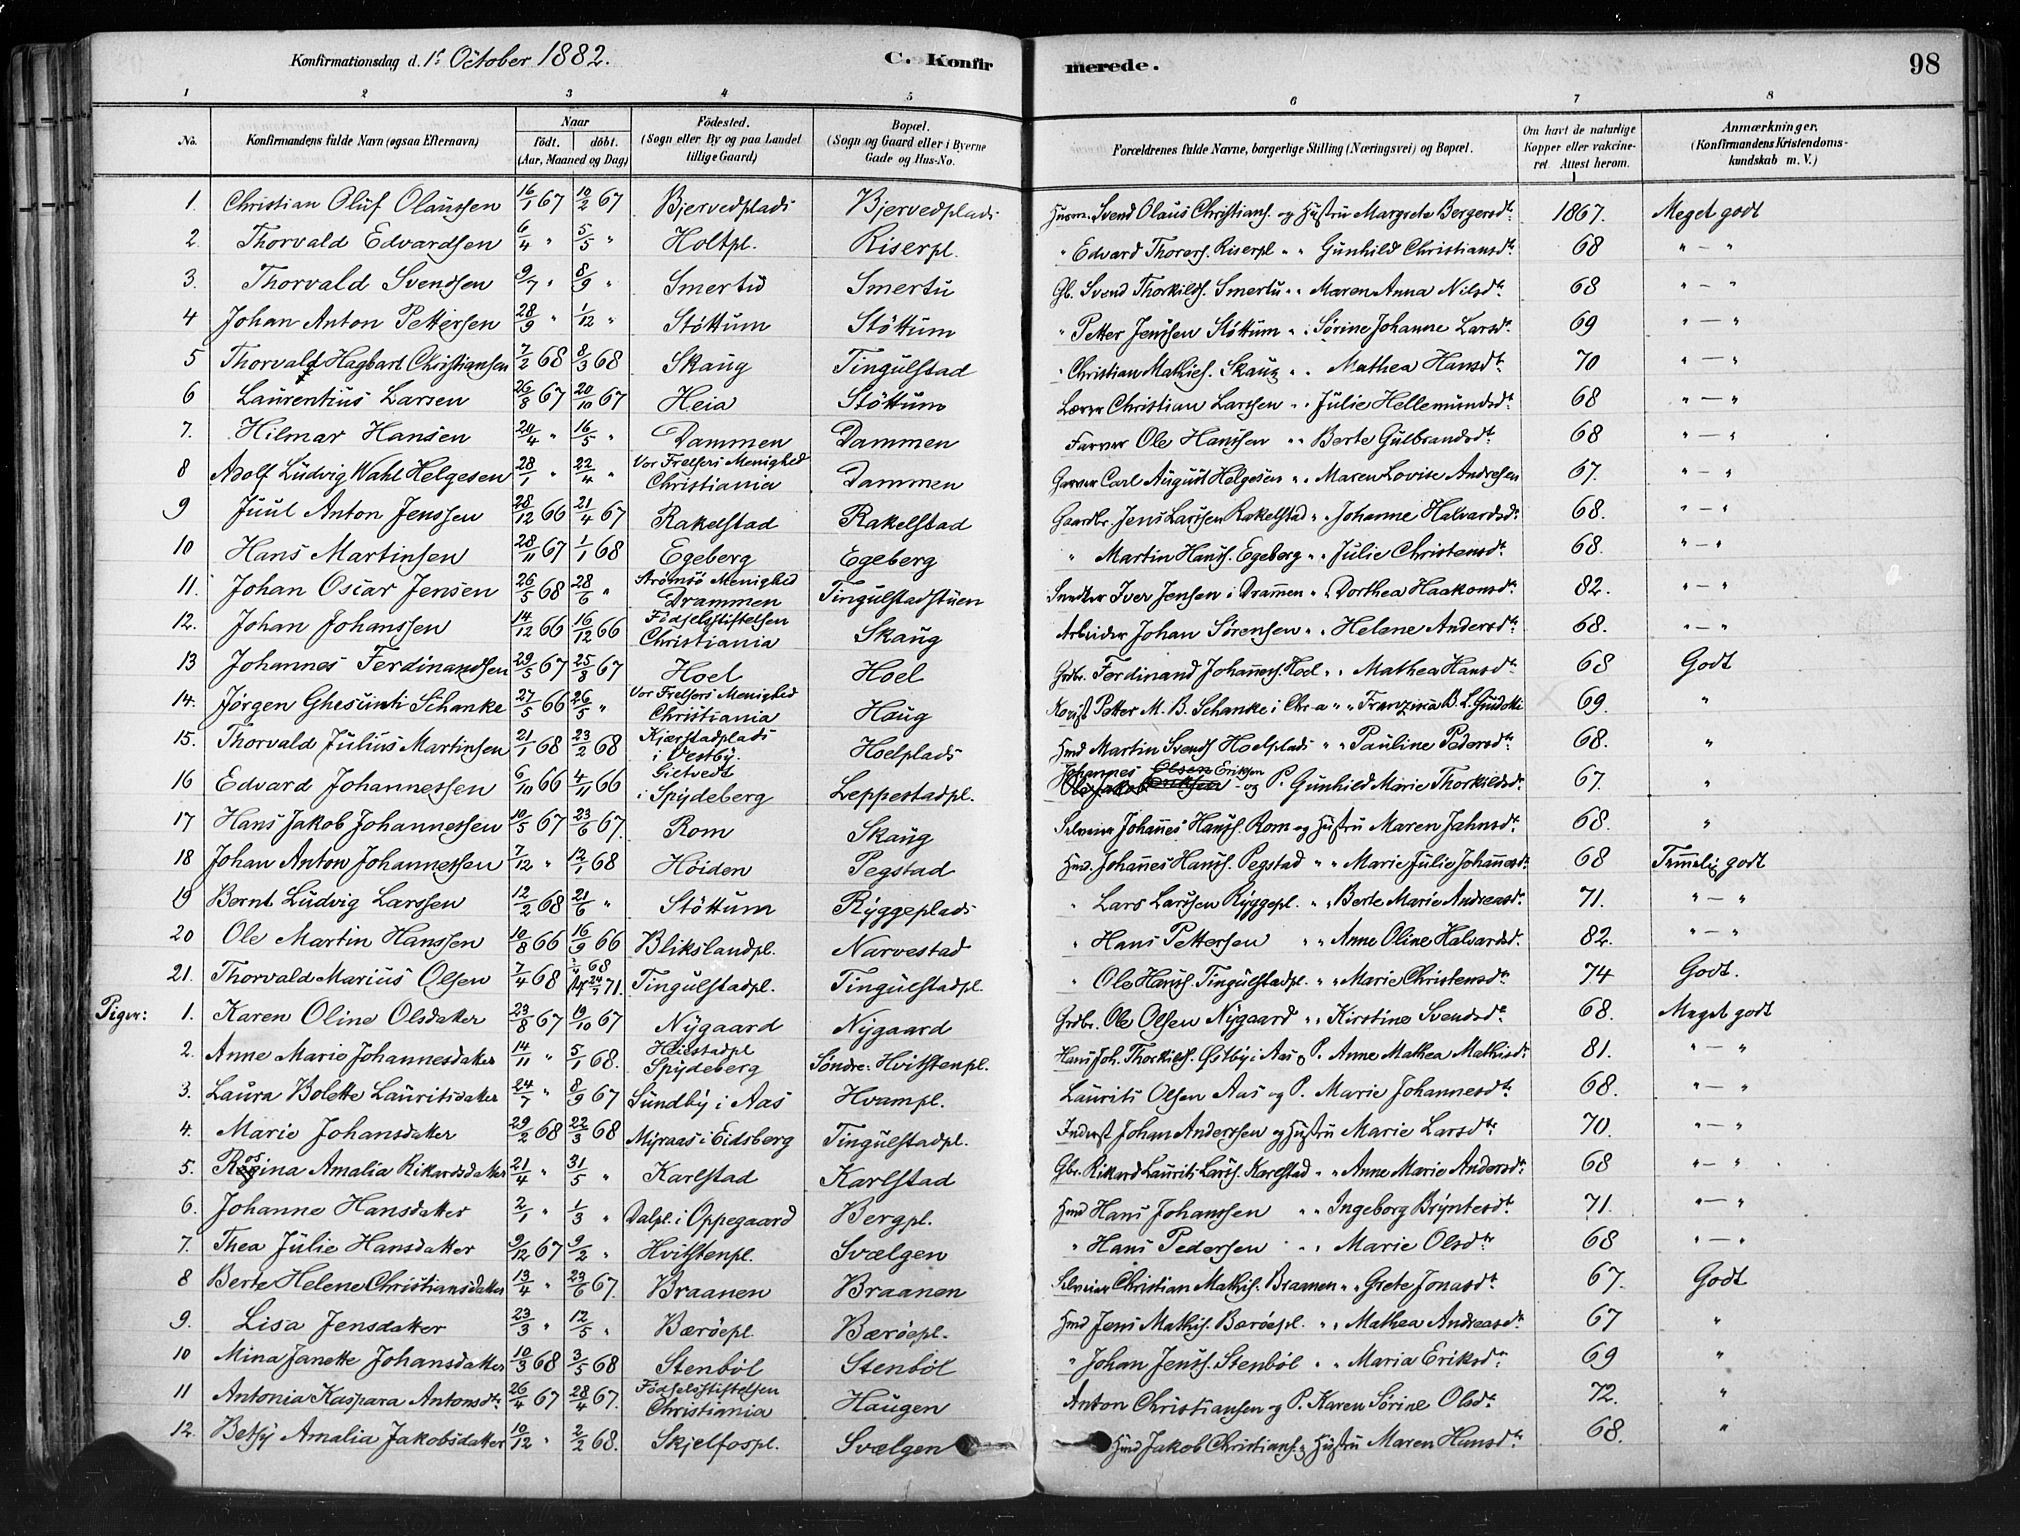 Konfirmationsdag d. 1ste October 1882. C. Konfirmerede. 98
1 2 3 4 5 6 7 8
No. Konfirmandens fulde Navn (ogsaa Efternavn) Naar født. døbt. (Aar, Maaned og Dag) Fødested. (Sogn eller By og paa Landet tillige Gaard) Bopæl. (Sogn og Gaard eller i Byerne Gade og Hus-No. Forældrenes fulde Navne, borgerlige Stilling (Næringsvei) og Bopæl. Om havt de naturlige Kopper eller vakcineret. Attest herom. Anmærkninger. (Konfirmandens Kristendomskundskab m. V.)
1. Christian Oluf Olaussen 16/1 67 10/2 67 Bjervedplads Bjervedplads Husm. Svend Olaus Christians. og Hustru Margrete Bergersdtr 1867. Meget godt
2. Thorvald Edvardsen 6/4 " 5/5 " Holtpl. Riserpl. " Edvard Thorers. Riserpl " " Gunhild Christiansdtr 68 " — "
3. Thorvald Svendsen 9/7 " 8/9 " Smertu Smertu Gb. Svend Thorkilds. Smertu " " Maren Anna Nilsdtr 68 " — "
4 Johan Anton Pettersen 28/9 " 1/12 " Støttum Støttum " Petter Jenssen Støttum " " Sørine Johanne Larsdtr 69 " — "
5 Thorvald Hagbart Christiansen 7/2 68 8/3 68 Skaug Tingulstad " Christian Mathies. Skaug " " Mathea Hansdtr 70 " — "
6 Laurentius Larsen 26/8 67 20/10 67 Heia Støttum Lærer Christian Larssen " " Julie Hellemundsdtr 68 " — "
7. Hilmar Hansen 24/4 " 16/5 " Dammen Dammen Farver Ole Hanssen " " Berte Gulbrandsdtr 68 " — "
8 Adolf Ludvig Wahl Helgesen 28/1 " 22/4 " Vor Frelsers Menighed Christiania Dammen Garver Carl August Helgesen " " Maren Lovise Andresen 67. " — "
9 Juul Anton Jenssen 28/12 66 21/4 67 Rakelstad Rakelstad Gaardbr. Jens Larssen Rakelstad " " Johanne Halvardsdtr 68. " — "
10 Hans Martinsen 28/11 67 1/1 68 Egeberg Egeberg " Martin Hanss. Egeberg " " Julie Christensdtr 68. " — "
11. Johan Oscar Jensen 26/5 68 28/6 " Strømsø Menighed Drammen Tingulstadstuen Snedker Iver Jensen i Drammen " " Dorthea Haakonsdtr 82. " — "
12. Johan Johanssen 14/12 66 16/12 66 Fødselsstiftelsen Christiania Skaug Arbeider Johan Sørensen " " Helene Andersdtr 68. " — "
13 Johannes Ferdinandsen 29/5 67 25/8 67 Hoel Hoel Grdbr. Ferdinand Johanness. Hoel " " Mathea Hansdtr 68 Godt
14. Jørgen Ghesunti Schanke 27/5 66 26/5 " Vor Frelsers Menighed Christiania Haug Petter M. B. Schanke i Chr-a " " Franzisca B. L. Guidotti 69. "
15. Thorvald Julius Martinsen 21/1 68 23/2 68 Kjærstadplads i Vestby. Hoelplads Hmd Martin Svends Hoelplads " " Pauline Pedersdtr 68. "
16 Edvard Johannessen 6/10 66 4/11 66 Gietvedt i Spydeberg Leppestadpl. Johannes Olsen Eriksen og P. Gunhild Marie Thorkildsdtr 67. "
17 Hans Jakob Johannessen 10/5 67 23/6 67. Rom Skaug Selveier Johannes Hanss. Rom og Hustru Maren Jahnsdtr 68. "
18 Johan Anton Johannessen 7/12 " 12/1 68 Høiden Pegstad Hmd. Johannes Hanss. Pegstad " " Marie Julie Johannesdtr 68 Temmelig godt
19 Bernt Ludvig Larssen 12/2 68 21/6 " Støttum Ryggeplads " Lars Larssen Ryggepl. " " Berte Marie Andreasdtr 71. " — "
20 Ole Martin Hanssen 10/8 66 16/9 66 Blikslandpl. Narvestad " Hans Pettersen " " Anne Oline Halvardsd. 82. " — "
21. Thorvald Marius Olsen 7/4 68 68 71. Tingulstadpl. Tingulstadpl. " Ole Hanss. Tingulstadpl. " " Marie Christensdtr 74 Godt.
Piger: 1. Karen Oline Olsdatter 23/8 67 19/10 67 Nygaard Nygaard Grdbr. Ole Olsen Nygaard " " Kirstine Svendsdtr 68. Meget godt
2. Anne Marie Johannesdatter 14/11 " 5/1 68. Heiestadpl Spydeberg Søndre: Hvitstenpl. Hans Joh. Thorkilds. Østby i Aas og P. Anne Mathea Mathisdtr 81. " — "
3. Laura Bolette Lauritsdatter 24/7 " 8/9 67 Sundby i Aas Hvampl. Laurits Olsen Aas og P. Marie Johannesdtr 68. " — "
4. Marie Johansdatter 29/2 68 22/3 68 Myraas i Eidsberg Tingulstadpl. Inderst Johan Anderssen og Hustru Marie Larsdtr 70. " — "
5. Rosina Amalia Rikardsdatter 21/4 " 31/5 " Karlstad Karlstad Gbr. Rikard Laurits Larss. Karlstad " " Anne Marie Andersdtr 68 " — "
6. Johanne Hansdatter 2/1 " 1/3 " Dalpl. i Oppegaard Bergpl. Hmd Hans Johanssen " " Ingeborg Bryntesdtr 71. " — "
7. Thea Julie Hansdatter 9/12 67 9/2 " Hvitstenpl. Svælgen " Hans Pedersen " " Marie Olsdtr 68 " — "
8 Berte Helene Christiansdatter 13/4 " 23/6 67. Braanen Braanen Selveier Christian Mathis. Braanen " " Grete Jonasdtr 67. Godt
9. Lisa Jensdatter 23/3 " 12/5 " Bærøepl. Bærøepl. Hmd Jens Mathis. Bærøepl. " " Mathea Andreasdtr 67 "
10 Mina Janette Johansdatter 10/3 68 3/5 68 Stenbøl Stenbøl " Johan Jenss. Stenbøl " " Maria Eriksdtr 69 "
11 Antonia Kaspara Antonsdtr 26/4 67 28/4 67. Fødselsstiftelsen Christiania Haugen Anton Christiansen og P. Karen Sørine Olsdtr 72. "
12. Betsy Amalia Jakobsdatter 10/12 " 2/2 68. Skjelfospl. Svælgen Hmd Jakob Christians. og Hustru Maren Hansdtr 68. "